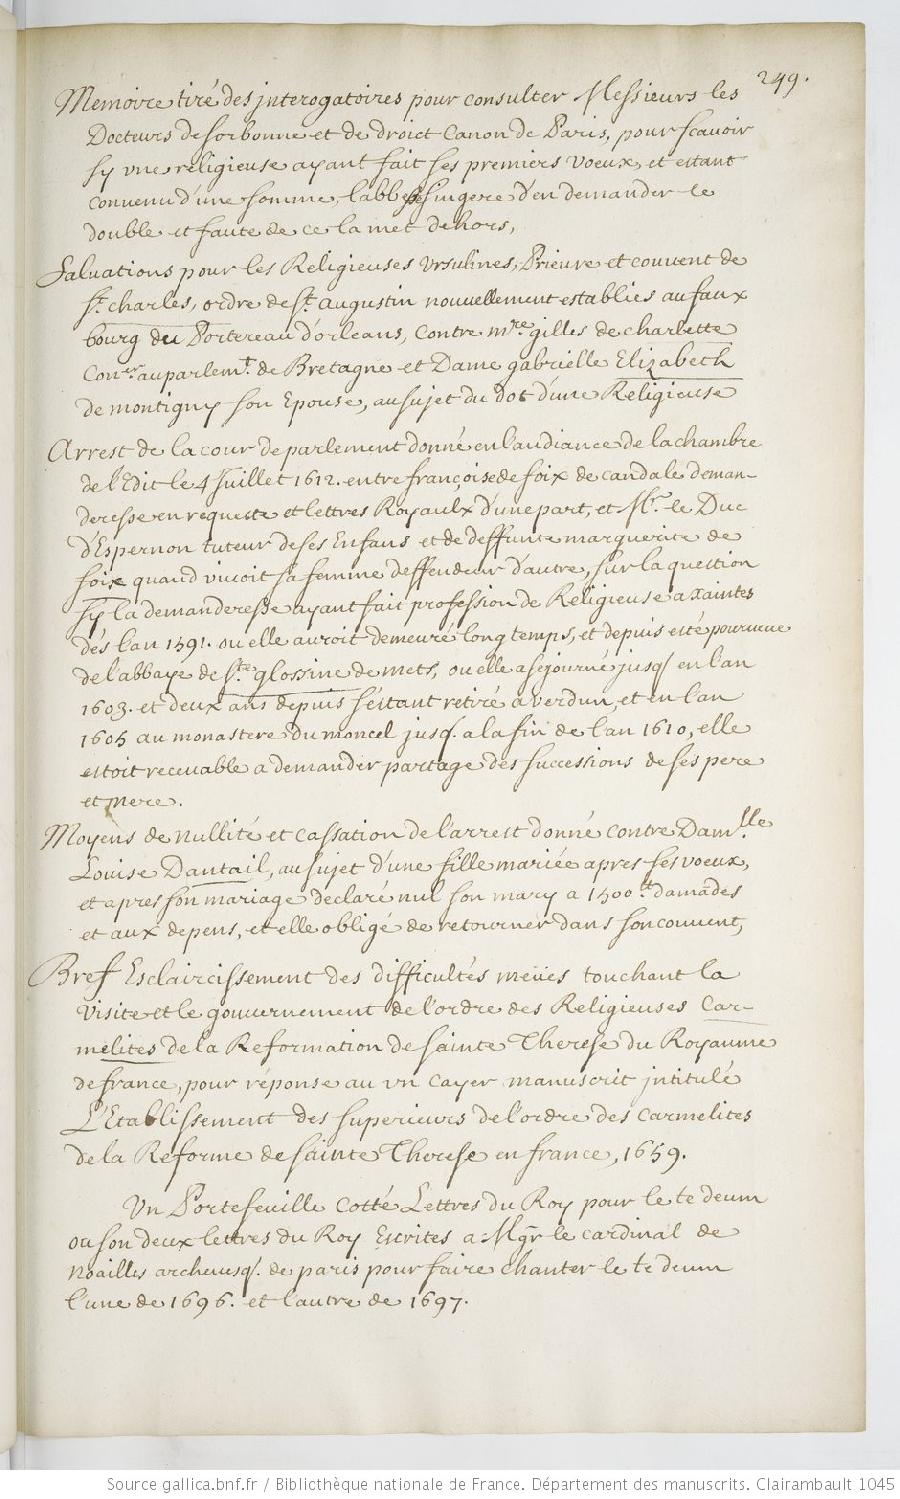 249.
Memoire tiré des jnterogatoires pour consulter Messieurs les
Docteurs de sorbonne et de droict Canon de Paris, pour scavoir
sy une religieuse ayant fait ses premiers voeux, et estant
convenu d'une somme, l'abbesse singere d'en demander le
double et faute de ce la met dehors,
Salvations pour les Religieuses Ursulines, Prieure et couvent de
St. charles, ordre de St. augustin nouvellement establies au faux
bourg du Portereau d'orleans, contre mre gilles de charbette
Coner. au parlemt. de Bretagne et Dame gabrielle Elizabeth
de montigny son Epouse, au sujet du dot d'une Religieuse
Arrest de la cour de parlement donné en l'audiance de la chambre
de l'Edit le 4 Juillet 1612. entre françoise de foix de candale deman-
deresse en requeste et lettres Royaulx d'une part, et Mr. le Duc
d'Espernon tuteur de ses Enfans et de deffunte marguerite de
foix quand vivoit sa femme deffendeur d'autre, sur la question
sy la demanderesse ayant fait profession de Religieuse a xaintes
dés l'an 1591. ou elle auroit demeuré long temps, et depuis esté pourveue
de l'abbaye de Ste. glossine de mets, ou elle a sejourné jusq. en l'an
1603. et deux ans depuis s'estant retiré a verdun, et en l'an
1605 au monastere du moncel jusq. a la fin de l'an 1610, elle
estoit recevable a demander partage des successions de ses pere
et mere.
Moyens de nullité et cassation de l'arrest donné contre Damlle
Louise Dantail, au sujet d'une fille mariée apres ses voeux,
et apres son mariage declaré nul son mary a 1500lt damādes
et aux depens, et elle obligé de retourner dans son couvent,
Bref Esclaircissement des difficultés meües touchant la
visite et le gouvernement de l'ordre des Religieuses Car-
melites de la Reformation de sainte Therese du Royaume
de france, pour réponse au un cayer manuscrit jntitulé
L'Etablissement des superieurs de l'ordre des carmelites
de la Reforme de sainte Therese en france, 1659.
Un Portefeuille cotté Lettres du Roy pour le te deum
ou son deux lettres du Roy Escrites a Mgr le cardinal de
Noailles archevesq. de paris pour faire chanter le te deum
l'une de 1696. et l'autre de 1697.
Source gallica.bnf.fr / Bibliothèque nationale de France. Département des manuscrits. Clairambault 1045